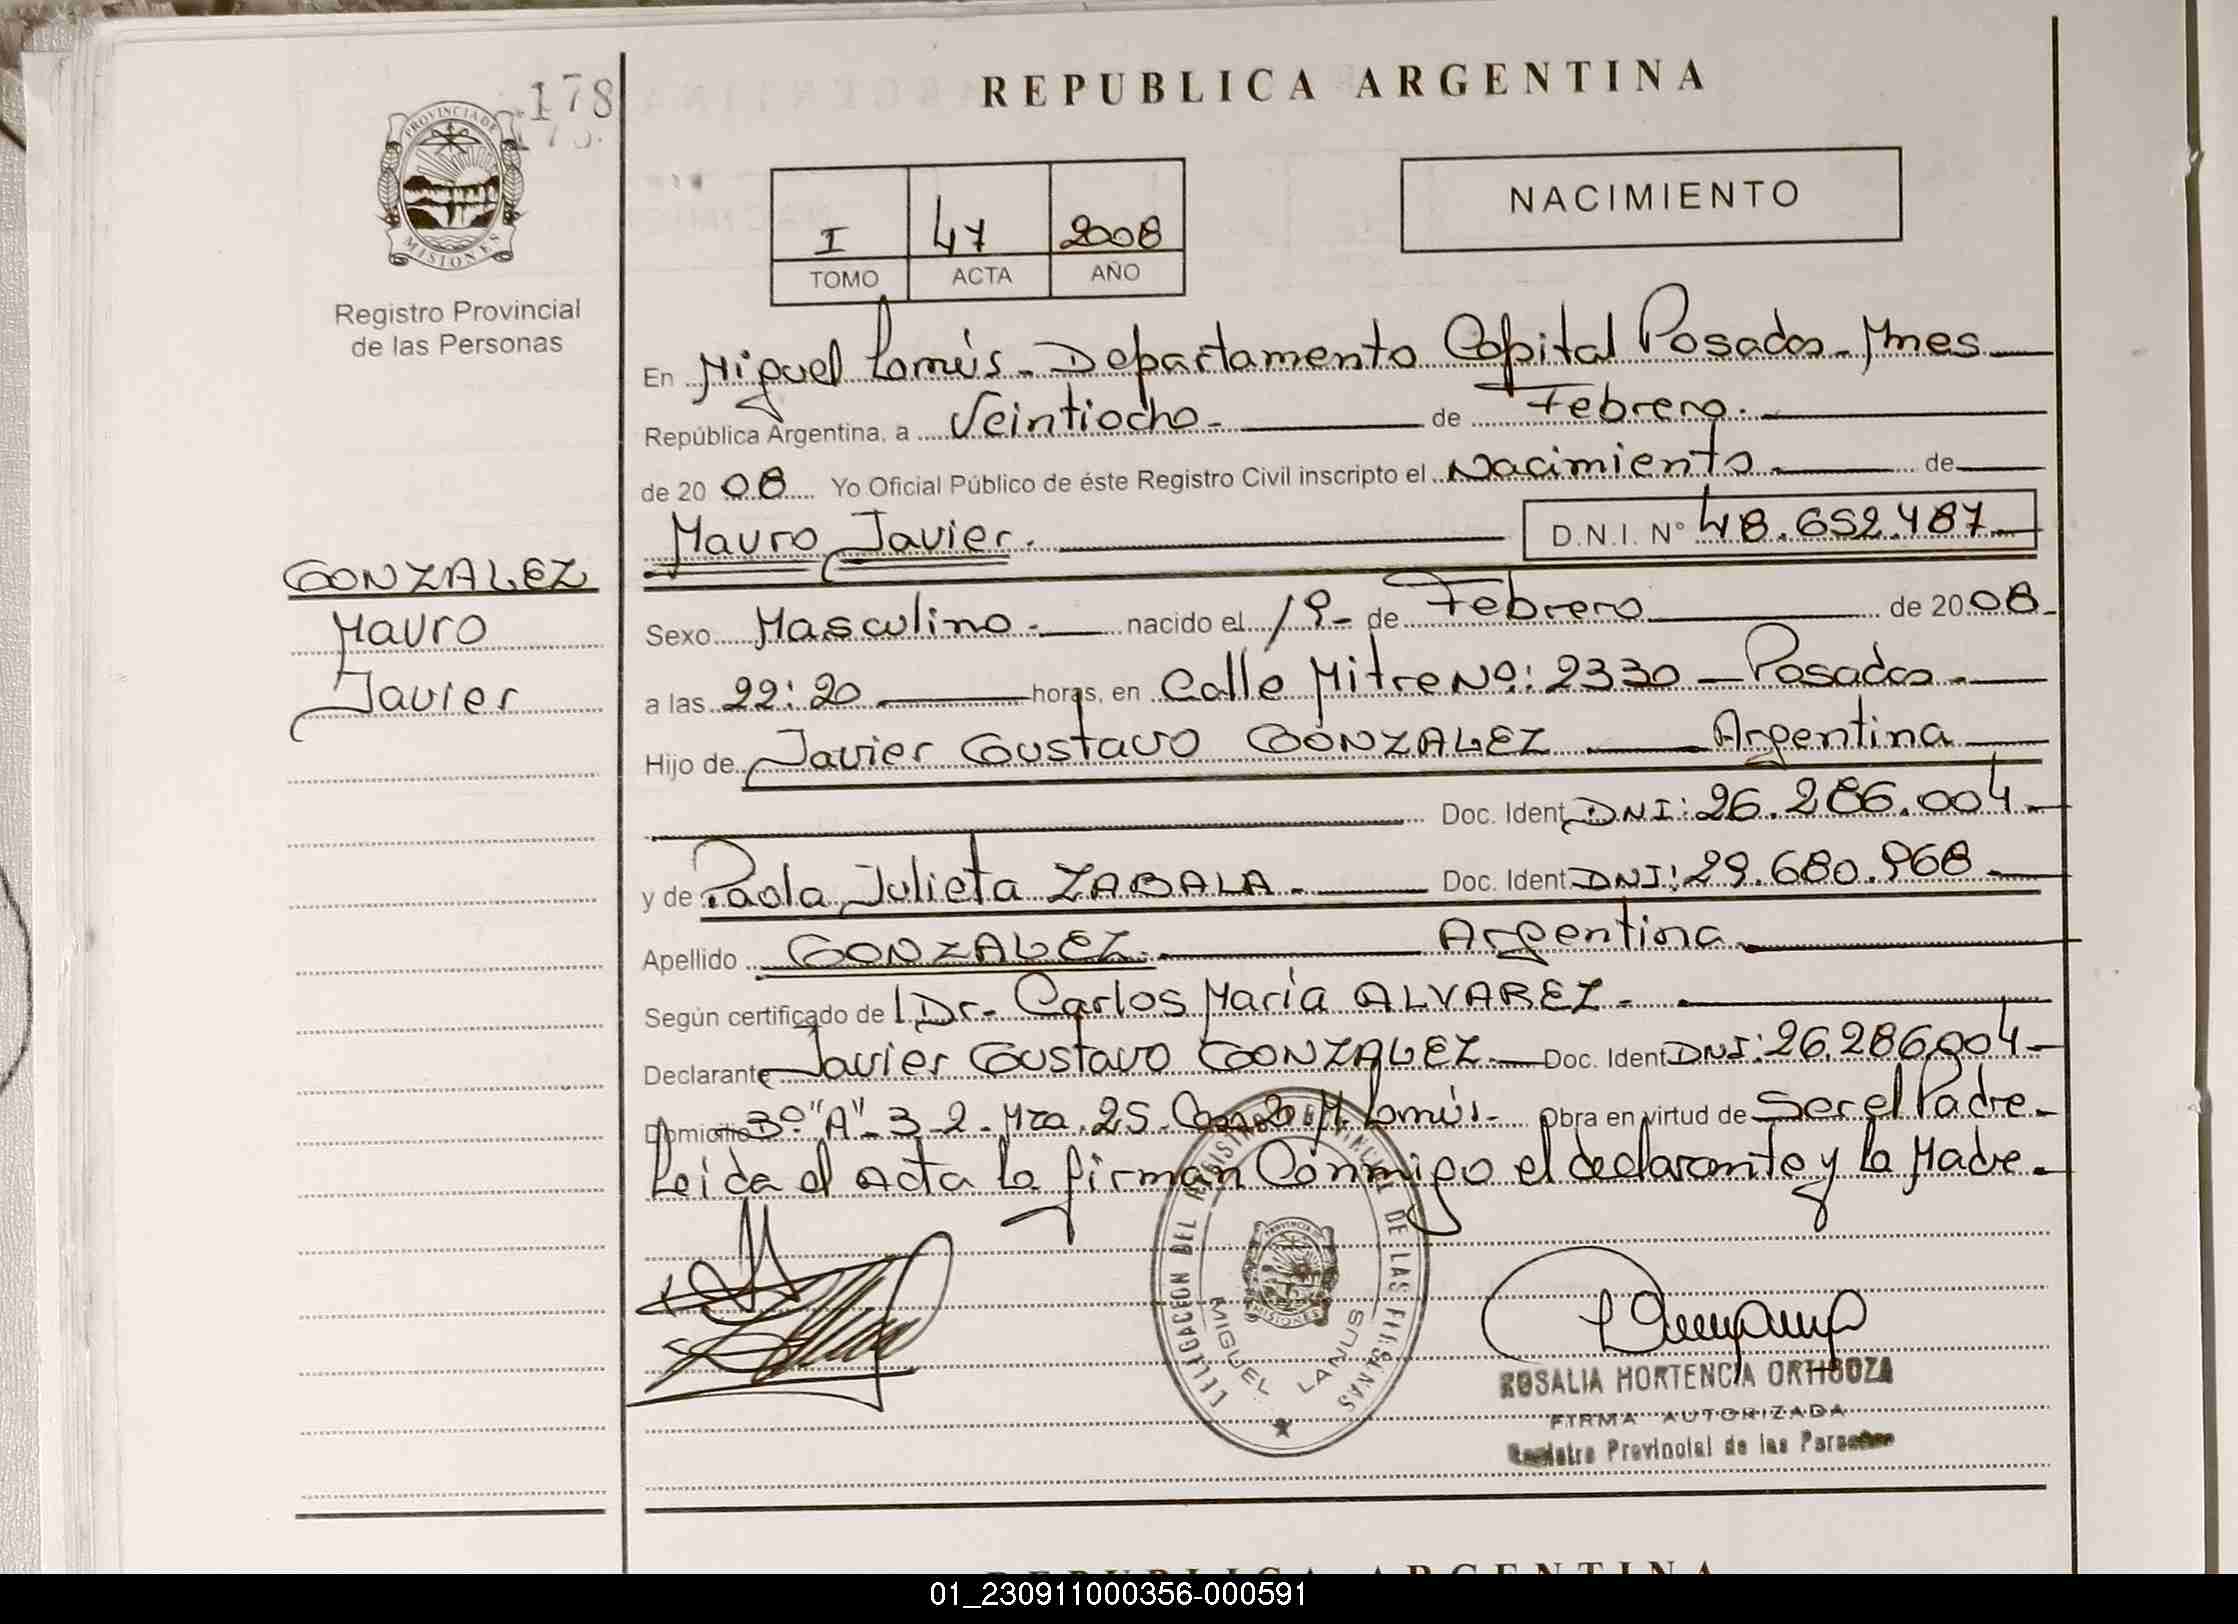 178
PROVINCIA DE
MISIONES
Registro Provincial
de las Personas
REPUBLICA ARGENTINA
I 47 2008
TOMO ACTA AÑO
NACIMIENTO
En Miguel Lanús - Departamento Capital Posadas - Mnes
República Argentina, a Veintiocho - de Febrero.
de 20 08 Yo Oficial Público de éste Registro Civil inscripto el Nacimiento de
Mauro Javier. D.N.I. N° 48.652.487
GONZALEZ
Mauro
Javier
Sexo Masculino - nacido el 19 - de Febrero de 20 08 -
a las 22:20 horas, en Calle Mitre Nº: 2330 - Posadas -
Hijo de Javier Gustavo GONZALEZ Argentina
Doc. Ident. DNI: 26.286.004 -
y de Paola Julieta ZABALA - Doc. Ident. DNI: 29.680.968
Apellido GONZALEZ Argentina
Según certificado del Dr. Carlos María ALVAREZ -
Declarante Javier Gustavo GONZALEZ - Doc. Ident DNI: 26.286.004 -
Domicilio 3º "A" - 3 2 - Mza. 25 - M. Lanús - Obra en virtud de Ser el Padre -
Leida el acta la firman Conmigo el declarante y la Madre.
DELEGACION DEL REGISTRO PROVINCIAL DE LAS PERSONAS
PROVINCIA
MISIONES
MIGUEL LANUS
ROSALIA HORTENCIA ORTIGOZA
FIRMA AUTORIZADA
Registro Provincial de las Personas
REPUBLICA ARGENTINA
01_230911000356-000591